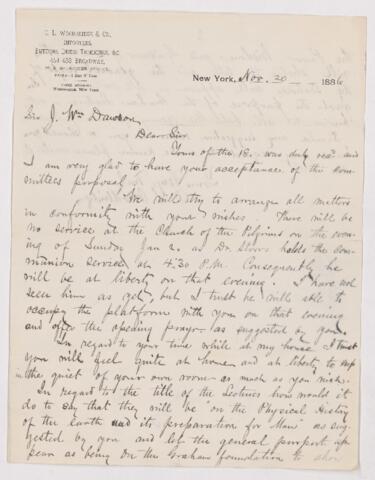 C. L. WOODBRIDGE & CO.
IMPORTERS,
454-458 BROADWAY,
New York, Nov. 20 1886
Sir J. Wm Dawson,
Dear Sir
Yours of the 18. was duly recd and
I am very glad to have your acceptance of the com-
mittees proposal.
We will try to arrange all matters
in conformity with your wishes. There will be
no service at the Church of the Pilgrims on the even-
ing of Sunday Jan 2. as Dr. Storrs holds the com-
munion service at 4.30 P.M. Consequently he
will be at liberty on that evening. I have not
seen him as yet, but I trust he will be able to
occupy the platform with you on that evening
and offer the opening prayer as suggested by you.
In regard to your time while at my house I trust
you will feel quite at home and at liberty to
in the quiet of your own room as much as you wish.
In regard to the title of the Lectures how would it
do to say that they will be "on the Physical History
of the Earth and its preparation for Man" as sug-
gested by you and let the general purport ap-
pear as being on the Graham foundation to show